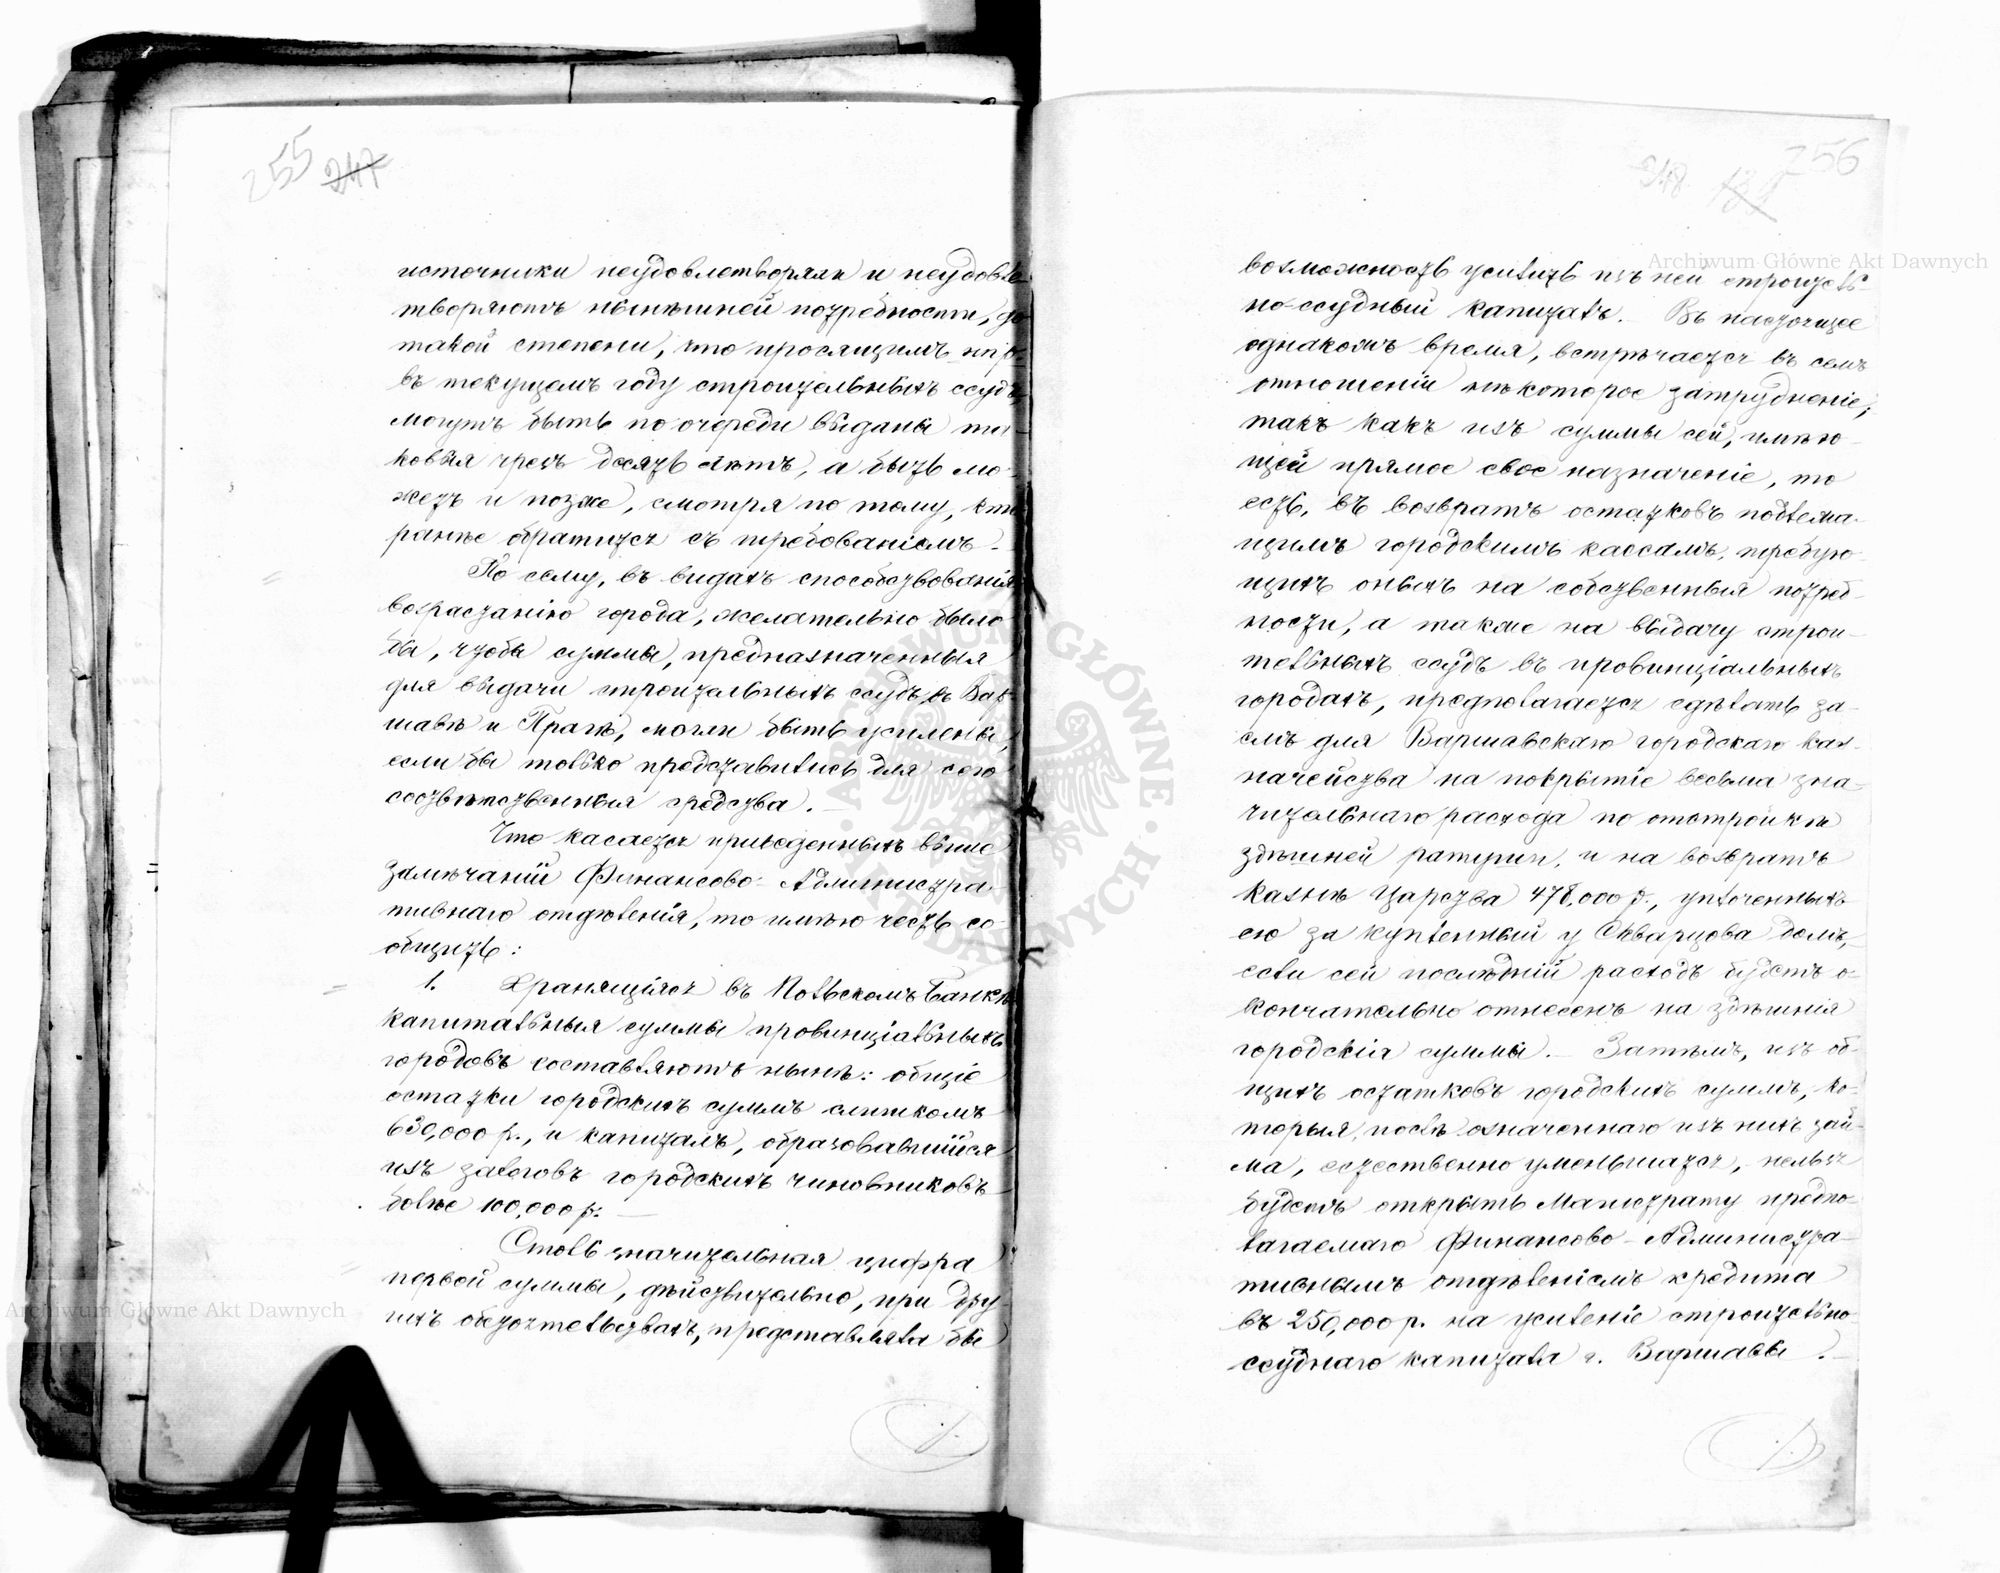 255 247
источники неудовлетворяли и неудовле-
творяютъ нынѣшней потребности, до
такой степени, что просящимъ
въ текущемъ году строительныхъ ссудъ,
могутъ быть по очереди выданы та-
ковыя чрезъ десять лѣтъ, а быть мо-
жетъ и позже, смотря по тому, кто
ранѣе обратится съ требованіемъ.
По сему, въ видахъ способствованія
возрастанію города, желательно было
бы, чтобы суммы, предназначенныя
для выдачи строительныхъ ссудъ въ Вар-
шавѣ и Прагѣ, могли быть усилены,
если бы только представились для сего
соотвѣтственныя средства. —
Что касается приведенныхъ выше
замѣчаній Финансово-Администра-
тивнаго отдѣленія, то имѣю честь со-
общить:
1. Хранящіяся въ Польскомъ Банкѣ
капитальныя суммы провинціальныхъ
городовъ составляютъ нынѣ: общіе
остатки городскихъ суммъ слишкомъ
630,000 р., и капиталъ, образовавшійся
изъ залоговъ городскихъ чиновниковъ
болѣе 100,000 р. —
Столь значительная цифра
первой суммы, дѣйствительно, при дру-
гихъ обстоятельствахъ, представляла бы
256
248 139
возможность усилить изъ ней строитель-
но-ссудный капиталъ. — Въ настоящее
однакожъ время, встрѣчается въ семъ
отношеніи нѣкоторое затрудненіе,
такъ какъ изъ суммы сей, имѣю-
щей прямое свое назначеніе, то
есть, въ возвратъ остатковъ подлежа-
щимъ городскимъ кассамъ, требую-
щихъ оныхъ на собственныя потреб-
ности, а также на выдачу строи-
тельныхъ ссудъ въ провинціальныхъ
городахъ, предполагается сдѣлать за-
емъ для Варшавскаго городскаго каз-
начейства на покрытіе весьма зна-
чительнаго расхода по отстройкѣ
здѣшней ратуши, и на возвратъ
казнѣ Царства 478,000 р., уплоченныхъ
ею за купленный у Скварцова домъ,
если сей послѣдній расходъ будетъ о-
кончательно отнесенъ на здѣшнія
городскія суммы. — Затѣмъ, изъ об-
щихъ остатковъ городскихъ суммъ, ко-
торыя, послѣ означеннаго изъ нихъ зай-
ма, естественно уменьшатся, нельзя
будетъ открыть Магистрату предпо-
лагаемаго Финансово-Администра-
тивнымъ отдѣленіемъ кредита
въ 250,000 р. на усиленіе строительно-
ссуднаго капитала г. Варшавы. —
Archiwum Główne Akt Dawnych
Archiwum Główne Akt Dawnych
ARCHIWUM GŁÓWNE AKT DAWNYCH